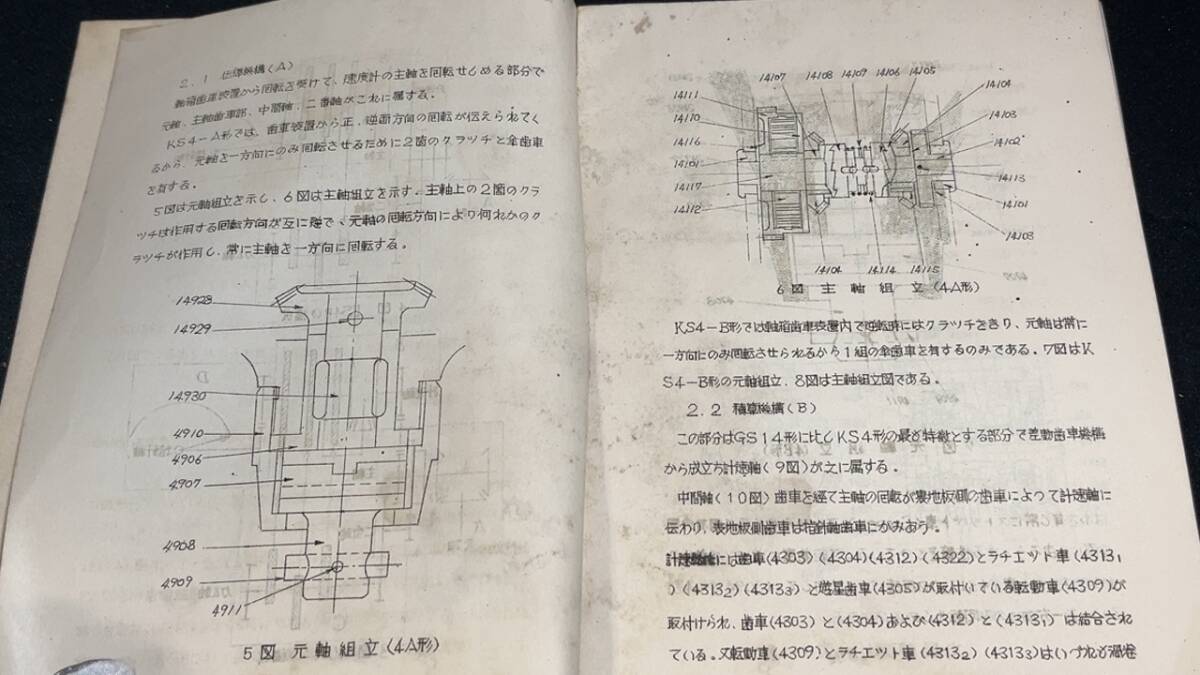 2.1 伝導機構(A)
軸箱歯車装置から回転を受けて、速度計の主軸を回転せしめる部分で
元軸、主軸歯車部、中間軸、二番軸がこれに属する。
KS4-A形では、歯車装置から正、逆両方向の回転が伝えられてく
るから、元軸を一方向にのみ回転させるために2箇のクラツチと傘歯車
を有する。
5図は元軸組立を示し、6図は主軸組立を示す。主軸上の2箇のクラ
ツチは作用する回転方向が互に逆で、元軸の回転方向により何れかのク
ラツチが作用し、常に主軸を一方向に回転する。
14928
14929
14930
4910
4906
4907
4908
4909
4911
5図 元軸組立(4A形)
14107 14108 14109 14106 14105
14111
14110
14116
14101
14117
14112
14104
14103
14102
14113
14101
14103
14104 14114 14115
6図 主軸組立(4A形)
KS4-B形では軸箱歯車装置内で逆転時にはクラツチをきり、元軸は常に
一方向にのみ回転させられるから1組の傘歯車を有するのみである。7図はK
S4-B形の元軸組立、8図は主軸組立図である。
2.2 積算機構(B)
この部分はGS14形に比しKS4形の最も特徴とする部分で差動歯車機構
から成立ち計速軸(9図)が之に属する。
中間軸(10図)歯車を経て主軸の回転が裏地板側の歯車によつて計速軸に
伝わり、表地板側歯車は指針軸歯車にかみあう。
計速軸には歯車(4303)(4304)(4312)(4322)とラチエツト車(4313₁
)(4313₂)(4313₃)と遊星歯車(4305)が取付いている転動車(4309)が
取付けられ、歯車(4303)と(4304)および(4312)と(4313₁)は結合され
ている。又転動車(4309)とラチエツト車(4313₂)(4313₃)はいづれも渦巻